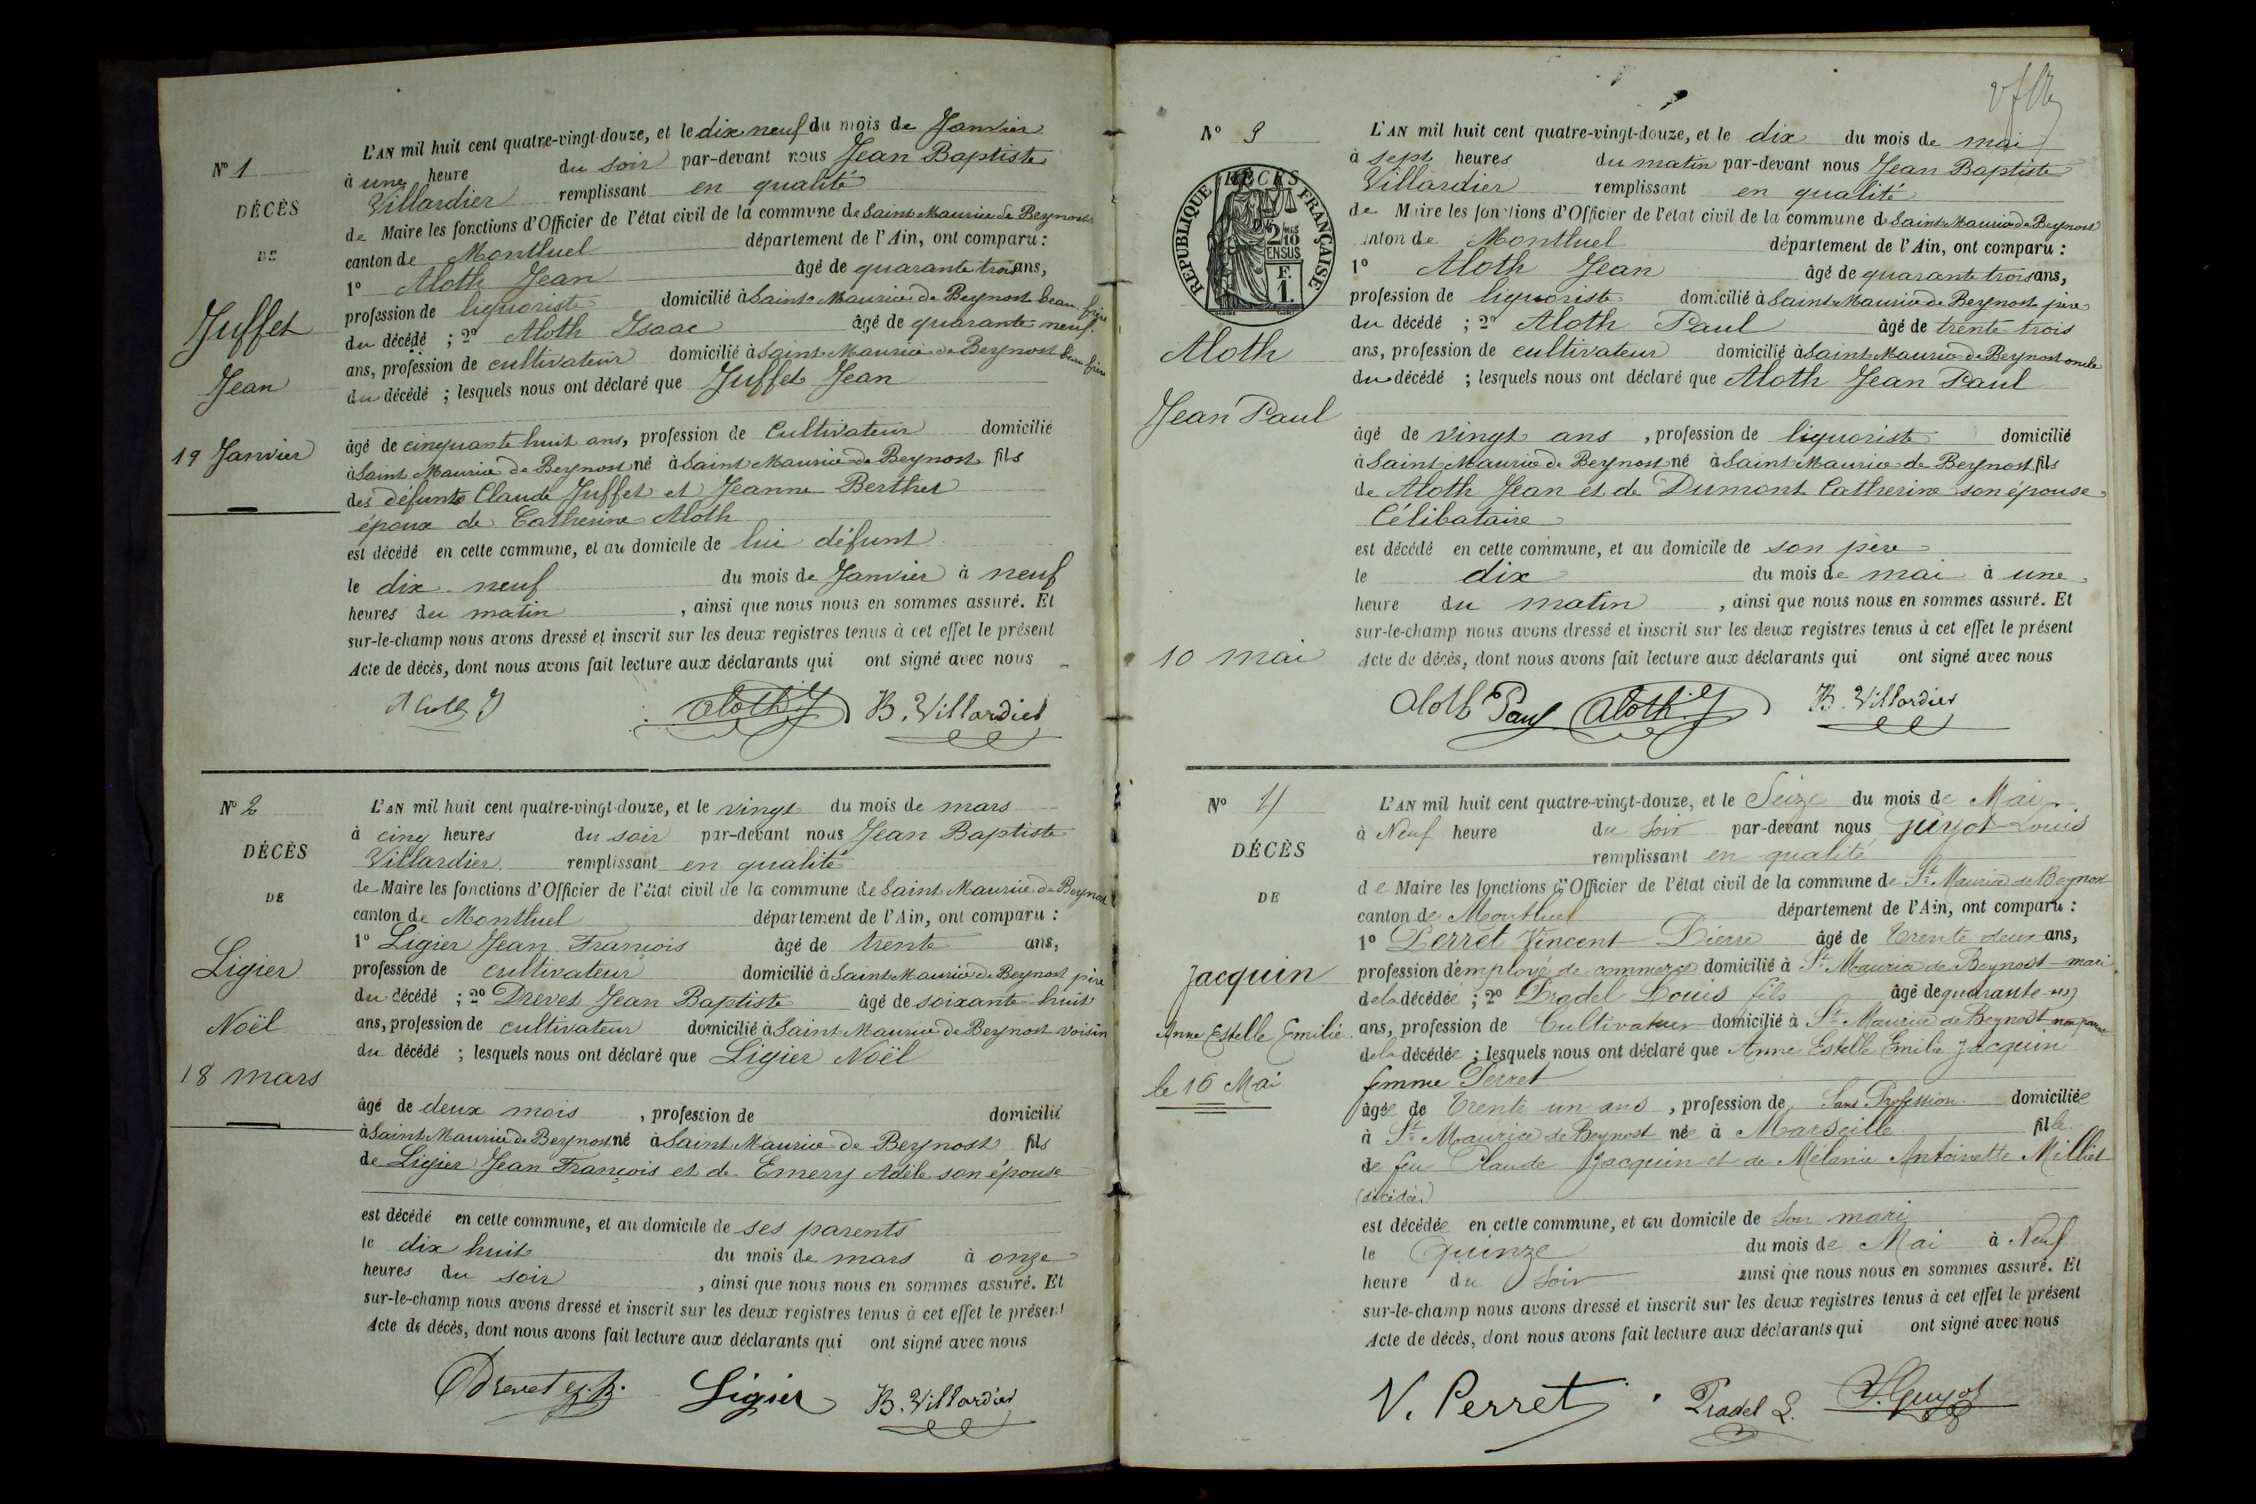 N° 1
DÉCÈS
DE
Juffet
Jean
19 Janvier
L'AN mil huit cent quatre-vingt-douze, et le dix neuf du mois de Janvier
à une heure du soir par-devant nous Jean Baptiste
Villardier remplissant en qualité
de Maire les fonctions d'Officier de l'état civil de la commune de Saint Maurice de Beynost
canton de Montluel département de l'Ain, ont comparu :
1° Aloth Jean âgé de quarante trois ans,
profession de liquoriste domicilié à Saint Maurice de Beynost beau frère
du décédé ; 2° Aloth Isaac âgé de quarante neuf
ans, profession de cultivateur domicilié à Saint Maurice de Beynost beau frère
du décédé ; lesquels nous ont déclaré que Juffet Jean
âgé de cinquante huit ans, profession de Cultivateur domicilié
à Saint Maurice de Beynost né à Saint Maurice de Beynost fils
des défunts Claude Juffet et Jeanne Berthet
époux de Catherine Aloth
est décédé en cette commune, et au domicile de lui défunt
le dix neuf du mois de Janvier à neuf
heures du matin , ainsi que nous nous en sommes assuré. Et
sur-le-champ nous avons dressé et inscrit sur les deux registres tenus à cet effet le présent
Acte de décès, dont nous avons fait lecture aux déclarants qui ont signé avec nous
Aloth J Aloth J B. Villardier
N° 2
DÉCÈS
DE
Ligier
Noël
18 mars
L'AN mil huit cent quatre-vingt-douze, et le vingt du mois de mars
à cinq heures du soir par-devant nous Jean Baptiste
Villardier remplissant en qualité
de Maire les fonctions d'Officier de l'état civil de la commune de Saint Maurice de Beynost
canton de Montluel département de l'Ain, ont comparu :
1° Ligier Jean François âgé de trente ans,
profession de cultivateur domicilié à Saint Maurice de Beynost père
du décédé ; 2° Drevet Jean Baptiste âgé de soixante huit
ans, profession de cultivateur domicilié à Saint Maurice de Beynost voisin
du décédé ; lesquels nous ont déclaré que Ligier Noël
âgé de deux mois , profession de domicilié
à Saint Maurice de Beynost né à Saint Maurice de Beynost fils
de Ligier Jean François et de Emery Adèle son épouse
est décédé en cette commune, et au domicile de ses parents
le dix huit du mois de mars à onze
heures du soir , ainsi que nous nous en sommes assuré. Et
sur-le-champ nous avons dressé et inscrit sur les deux registres tenus à cet effet le présent
Acte de décès, dont nous avons fait lecture aux déclarants qui ont signé avec nous
Drevet J. B. Ligier B. Villardier
N° 3
RÉPUBLIQUE FRANÇAISE
DÉCÈS
2/10
EN SUS
F.
1.
Aloth
Jean Paul
10 mai
L'AN mil huit cent quatre-vingt-douze, et le dix du mois de mai
à sept heures du matin par-devant nous Jean Baptiste
Villardier remplissant en qualité
de Maire les fonctions d'Officier de l'état civil de la commune de Saint Maurice de Beynost
canton de Montluel département de l'Ain, ont comparu :
1° Aloth Jean âgé de quarante trois ans,
profession de liquoriste domicilié à Saint Maurice de Beynost père
du décédé ; 2° Aloth Paul âgé de trente trois
ans, profession de cultivateur domicilié à Saint Maurice de Beynost oncle
du décédé ; lesquels nous ont déclaré que Aloth Jean Paul
âgé de vingt ans , profession de liquoriste domicilié
à Saint Maurice de Beynost né à Saint Maurice de Beynost fils
de Aloth Jean et de Dumont Catherine son épouse
Célibataire
est décédé en cette commune, et au domicile de son père
le dix du mois de mai à une
heure du matin , ainsi que nous nous en sommes assuré. Et
sur-le-champ nous avons dressé et inscrit sur les deux registres tenus à cet effet le présent
Acte de décès, dont nous avons fait lecture aux déclarants qui ont signé avec nous
Aloth Paul Aloth J B. Villardier
N° 4
DÉCÈS
DE
Jacquin
Anne Estelle Emilie
le 16 Mai
L'AN mil huit cent quatre-vingt-douze, et le Seize du mois de Mai
à Neuf heure du soir par-devant nous Guyot Louis
remplissant en qualité
de Maire les fonctions d'Officier de l'état civil de la commune de St Maurice de Beynost
canton de Montluel département de l'Ain, ont comparu :
1° Perret Vincent Pierre âgé de trente deux ans,
profession d'employé de commerce domicilié à St Maurice de Beynost mari
de la décédée ; 2° Pradel Louis fils âgé de quarante
ans, profession de Cultivateur domicilié à St Maurice de Beynost non parent
de la décédée ; lesquels nous ont déclaré que Anne Estelle Emilie Jacquin
femme Perret
âgée de trente un ans , profession de Sans Profession domiciliée
à St Maurice de Beynost née à Marseille fille
de feu Claude Jacquin et de Melanie Antoinette Milliet
(décédée)
est décédée en cette commune, et au domicile de son mari
le Quinze du mois de Mai à Neuf
heure du soir ainsi que nous nous en sommes assuré. Et
sur-le-champ nous avons dressé et inscrit sur les deux registres tenus à cet effet le présent
Acte de décès, dont nous avons fait lecture aux déclarants qui ont signé avec nous
V. Perret Pradel L. Guyot